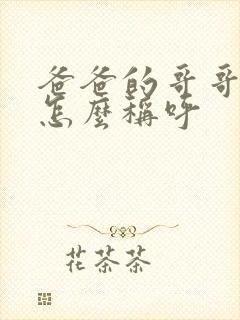 爸爸的哥哥
怎麼稱呼
花茶茶